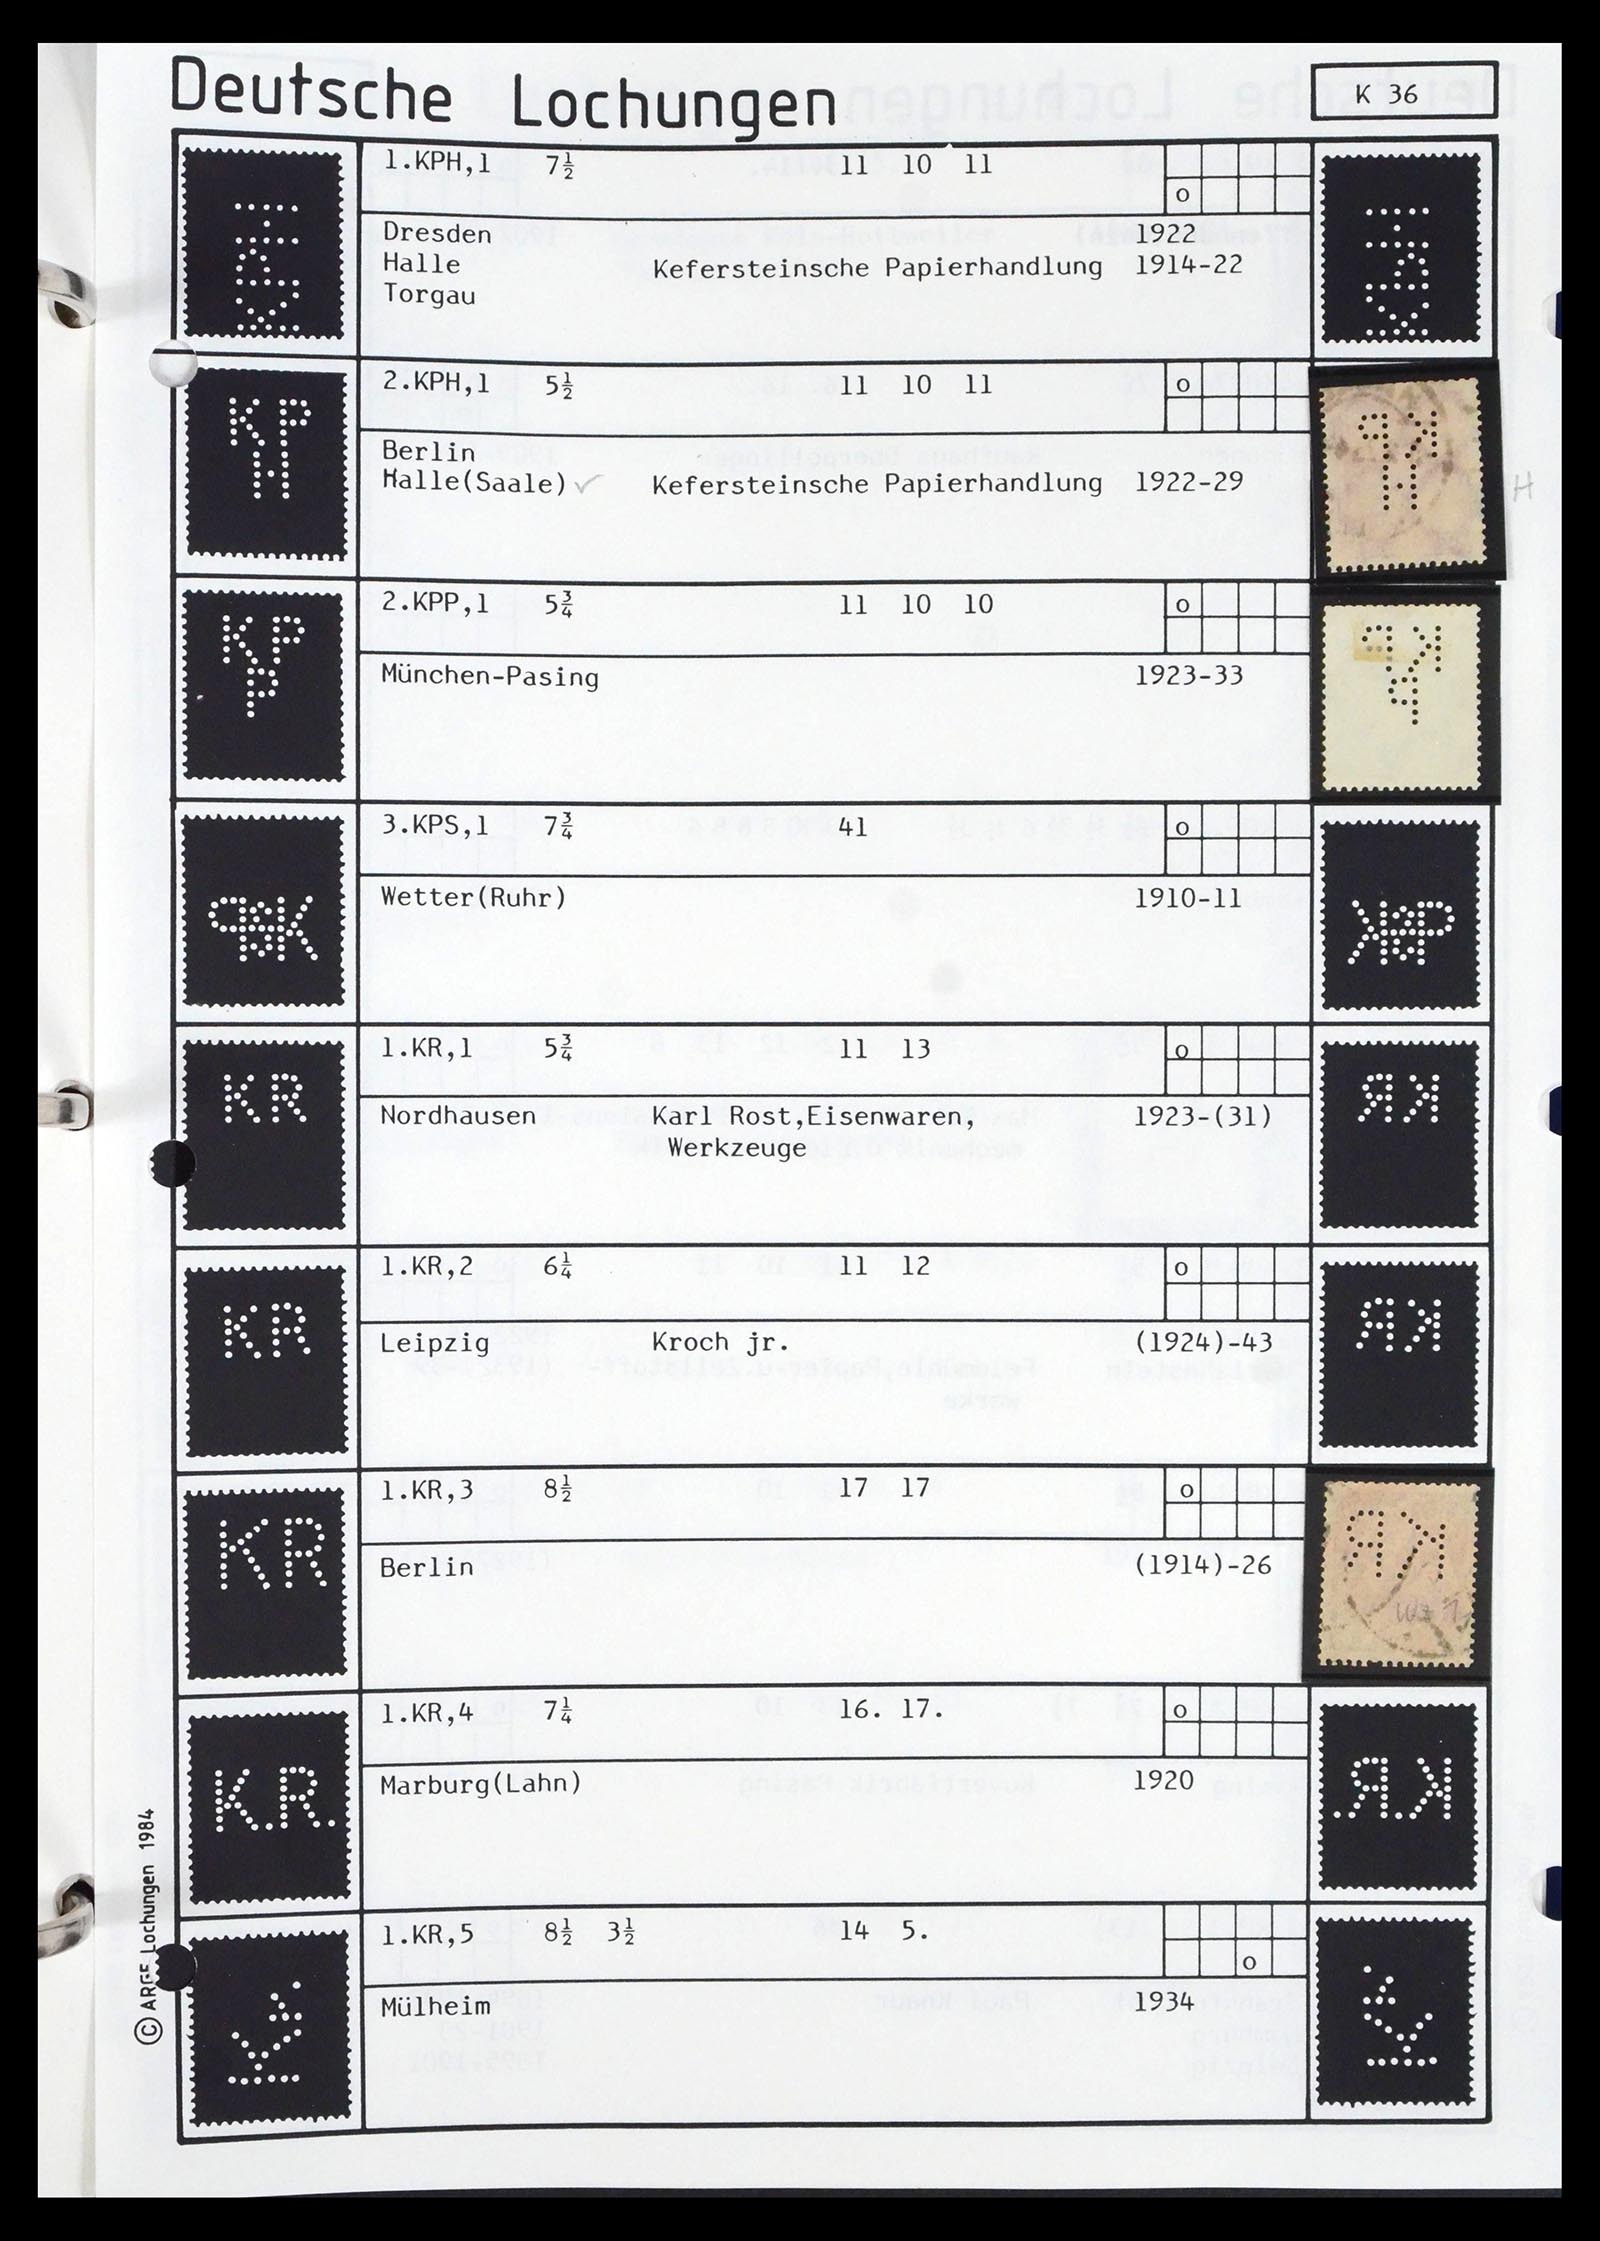 Deutsche Lochungen
K 36
1.KPH,1 7½ 11 10 11
o
Dresden 1922
Halle Kefersteinsche Papierhandlung 1914-22
Torgau
2.KPH,1 5½ 11 10 11 o
Berlin
Halle(Saale) ✓ Kefersteinsche Papierhandlung 1922-29
H
KP
H
2.KPP,1 5¾ 11 10 10 o
München-Pasing 1923-33
KP
P
3.KPS,1 7¾ 41 o
Wetter(Ruhr) 1910-11
1.KR,1 5¾ 11 13 o
Nordhausen Karl Rost,Eisenwaren, 1923-(31)
Werkzeuge
KR
1.KR,2 6¼ 11 12 o
Leipzig Kroch jr. (1924)-43
KR
1.KR,3 8½ 17 17 o
Berlin (1914)-26
KR
1.KR,4 7¼ 16. 17. o
Marburg(Lahn) 1920
K.R.
1.KR,5 8½ 3½ 14 5.
o
Mülheim 1934
© ARGE Lochungen 1984